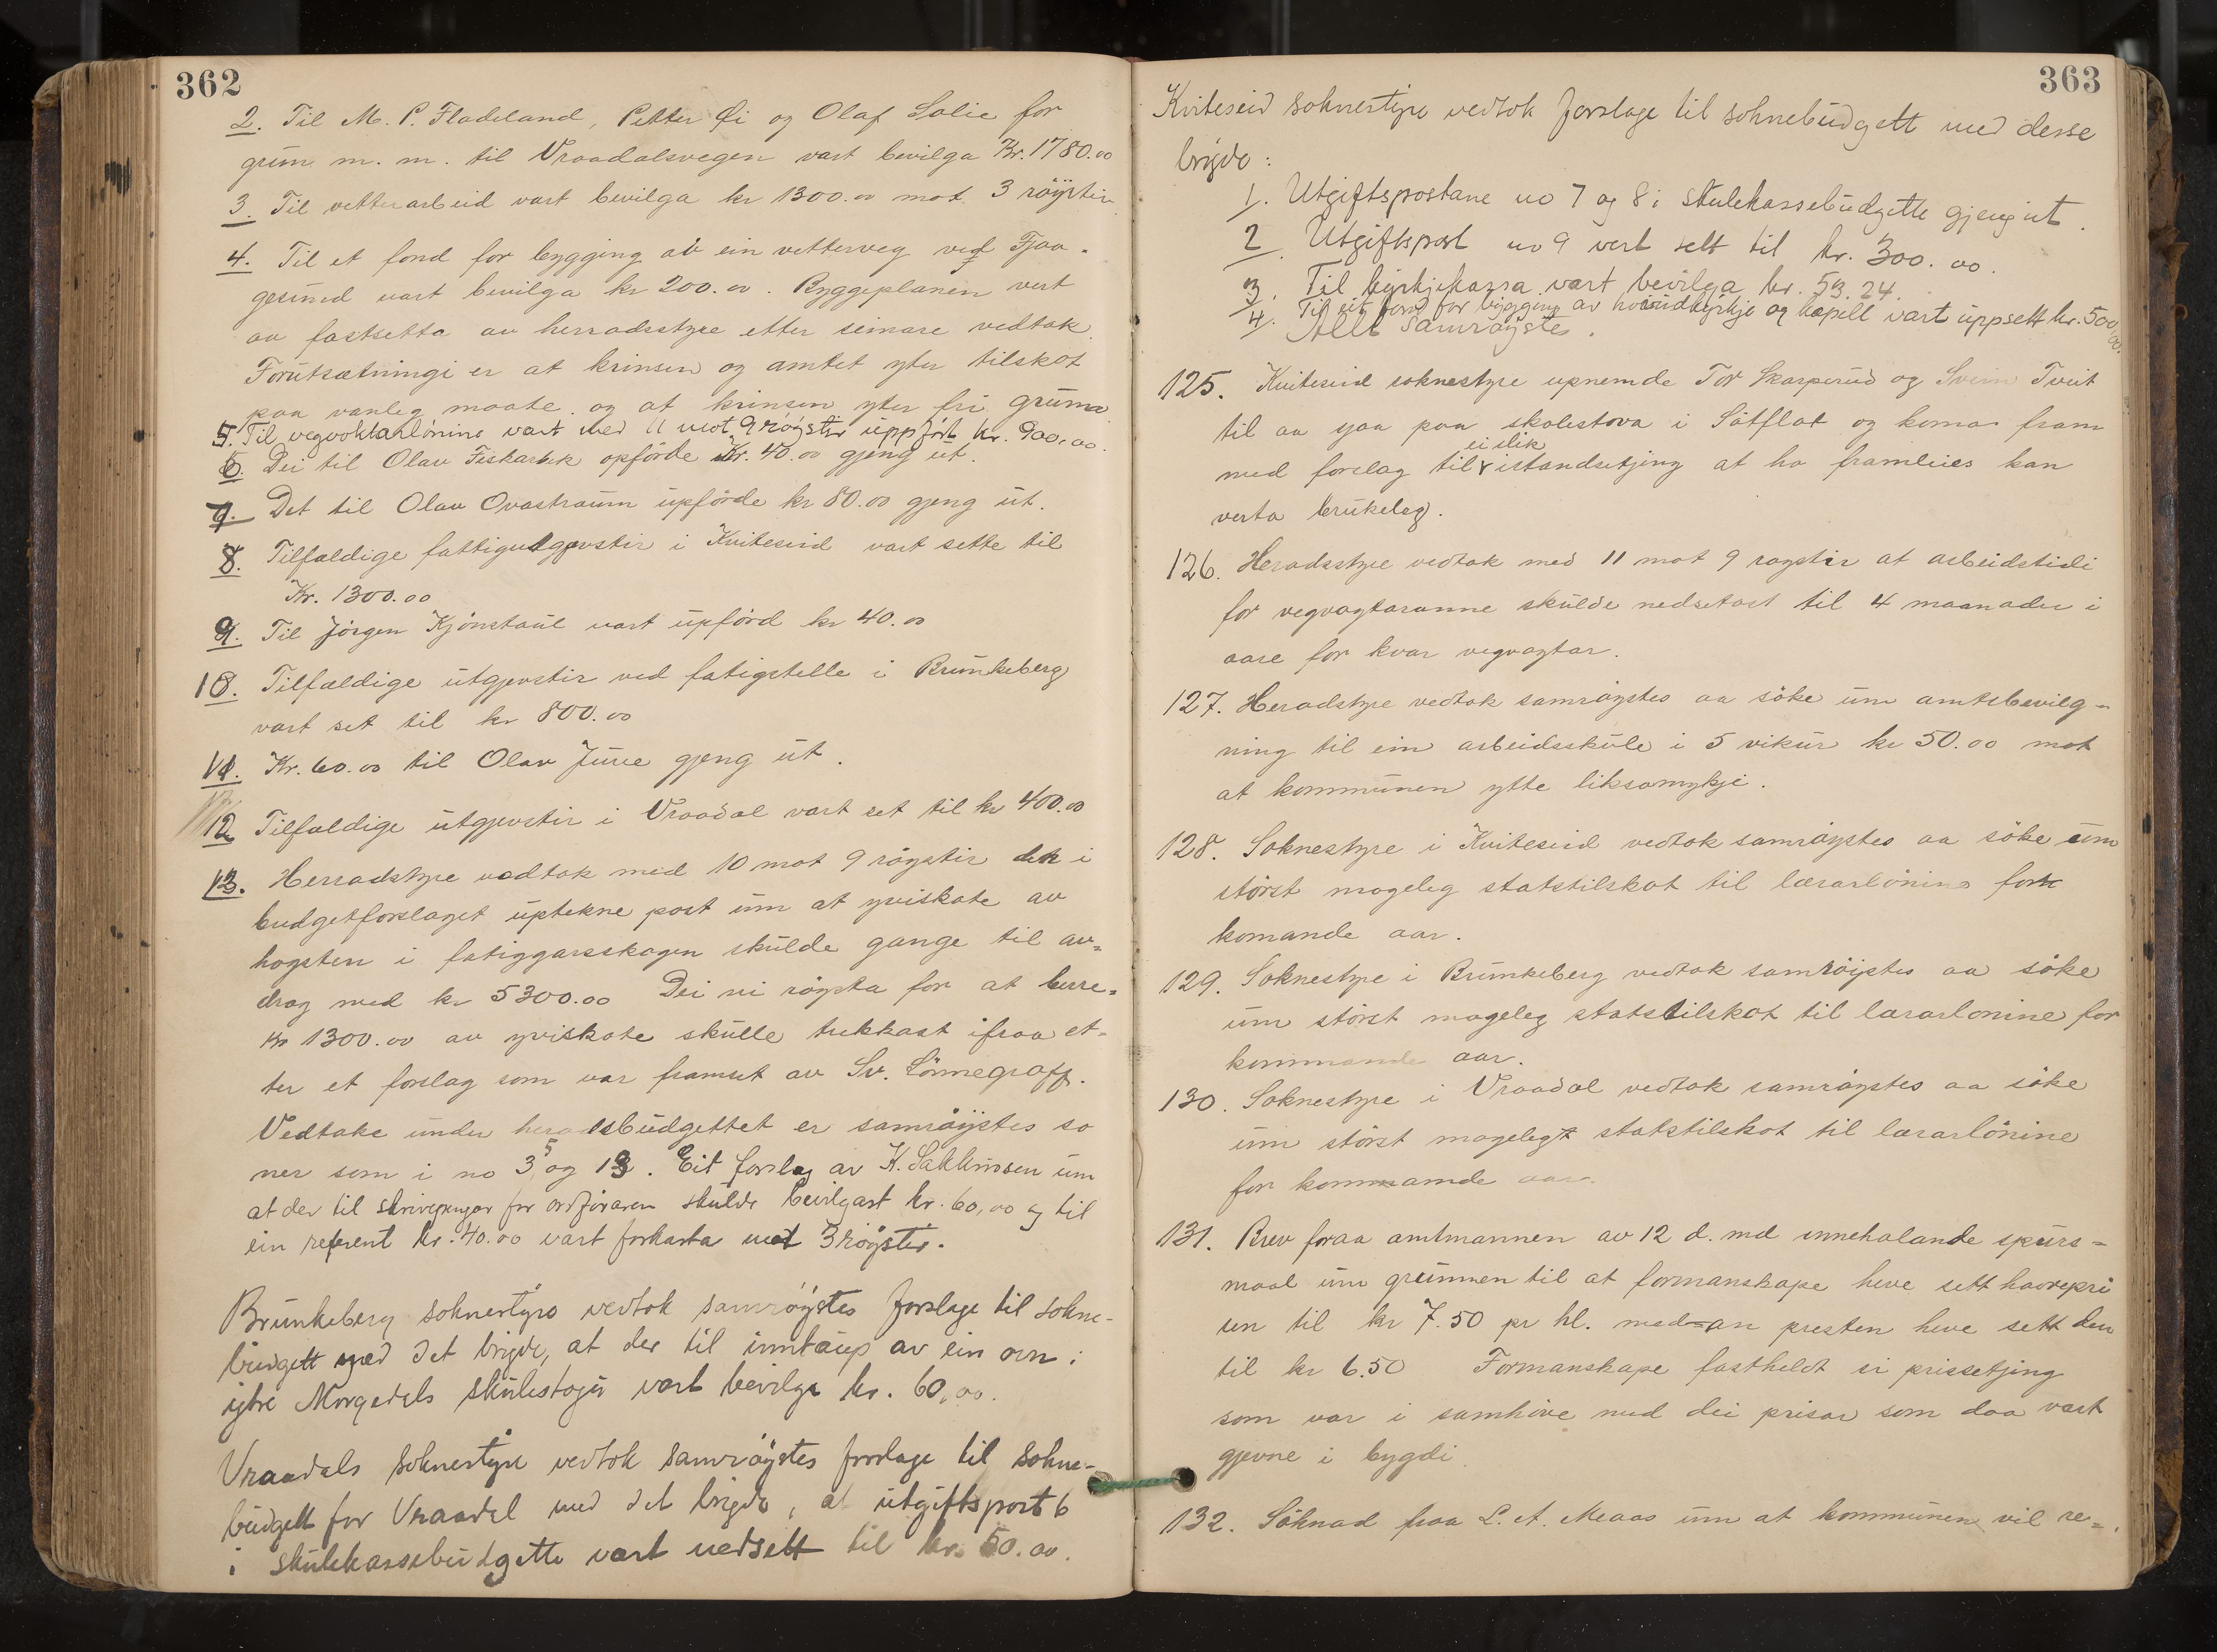 362
2. Til M. P. Fladeland, Petter Øi og Olaf Lolie for
grunn m. m. til Vraadalsvegen vart bevilga Kr. 1780.00
3. Til vetterarbeid vart bevilga kr 1300.00 mot 3 röystir
4. Til et fond for bygging av ein vetterveg ved Fjaa-
gesund vart bevilga kr 200.00. Byggeplanen vert
aa fastsetta av herradsstyre etter seinare vedtak.
Forutsætningi er at krinsen og amtet yter tilskot
paa vanleg maate og at krinsen yter fri grunn
5. Til vegvoktarlönine vart med 11 mot 9 röystir uppfört kr. 900.00.
6. Dei til Olav Fiskarbek opförde Kr. 40.00 gjeng ut.
7. Det til Olav Ovastraum upförde kr 80.00 gjeng ut.
8. Tilfældige fattigutgjevstir i Kviteseid vart sette til
Kr. 1300.00
9. Til Jörgen Kjönstaul vart upförd kr 40.00
10. Tilfældige utgjevstir ved fatigstelle i Brunkeberg
vart set til kr 800.00
11. Kr. 60.00 til Olav Juve gjeng ut.
12 Tilfældige utgjevstir i Vraadal vart set til kr 400.00
13. Herradstyre vedtok med 10 mot 9 röystir den i
budgetforslaget uptekne post um at yviskote av
hogsten i fatiggarsskogen skulde gange til av=
drag med kr 5300.00 Dei ni röysta for at berre=
Kr 1300.00 av yviskote skulle trekkast ifraa et-
ter et forslag som var framset av Sv. Lönnegraff.
Vedtake under heradsbudgettet er samröystes so
ner som i no 3, 5 og 13. Eit forslag av K. Sakkinsen um
at der til skrivepengar for ordföraren skulde bevilgast kr. 60,00 og til
ein referent kr. 40.00 vart forkasta mot 3 röyster.
Brunkeberg soknestyre vedtok samröystes forslage til sokne-
budgett med det brigde, at der til innkaup av ein ovn i
ytre Morgedals skulestogu vart bevilga kr. 60,00.
Vraadals soknestyre vedtok samröystes forslage til sokne-
budgett for Vraadal med det brigde, at utgiftspost 6
i skulekassebudgette vart nedsett til kr. 50.00.
363
Kviteseid soknestyre vedtok forslage til soknebudgett med desse
brigde:
1. Utgiftspostane no 7 og 8 i skulekassebudgette gjeng ut.
2. Utgiftspost no 9 vert sett til kr. 300.00.
3. Til kyrkjekassa vart bevilga kr. 53.24.
4. Til eit fond for bygging av hovudkyrkje og kapell vart uppsett kr. 500,00.
Allt samröystes.
125. Kviteseid soknestyre upnemde Tor Skarperud og Svein Tveit
til aa sjaa paa skolestova i Sätflat og koma fram
ei slik
med forslag til istandsetjing at ho framleies kan
verta brukeleg.
126. Heradsstyre vedtok med 11 mot 9 røystir at arbeidstidi
for vegvagtaranne skulde nedsetast til 4 maanader i
aare for kvar vegvagtar.
127. Heradstyre vedtok samröystes aa söke um amtsbevilg-
ning til ein arbeidsskule i 5 vikur kr 50.00 mot
at kommunen ytte liksomykje.
128. Soknestyre i Kviteseid vedtok samröystes aa söke um
störst mogeleg statstilskot til lærarlönine for
komande aar.
129. Soknestyre i Brunkeberg vedtok samröystes aa söke
um störst mogeleg statstilskot til lærarlonine for
kommande aar.
130. Soknestyre i Vraadal vedtok samröystes aa söke
um störst mogelegt statstilskot til lærarlönine
for kommande aar.
131. Brev foraa amtmannen av 12 d. md innehalande spurs=
maal um grunnen til at formanskape heve sett havrepri
sen til kr 7.50 pr hl. med-an presten heve sett den
til kr 6.50 Formanskape fastheldt si prissetjing
som var i samhöve med dei prisar som daa vart
gjevne i bygdi.
132. Söknad fraa L. A. Meaas um at kommunen vil re=